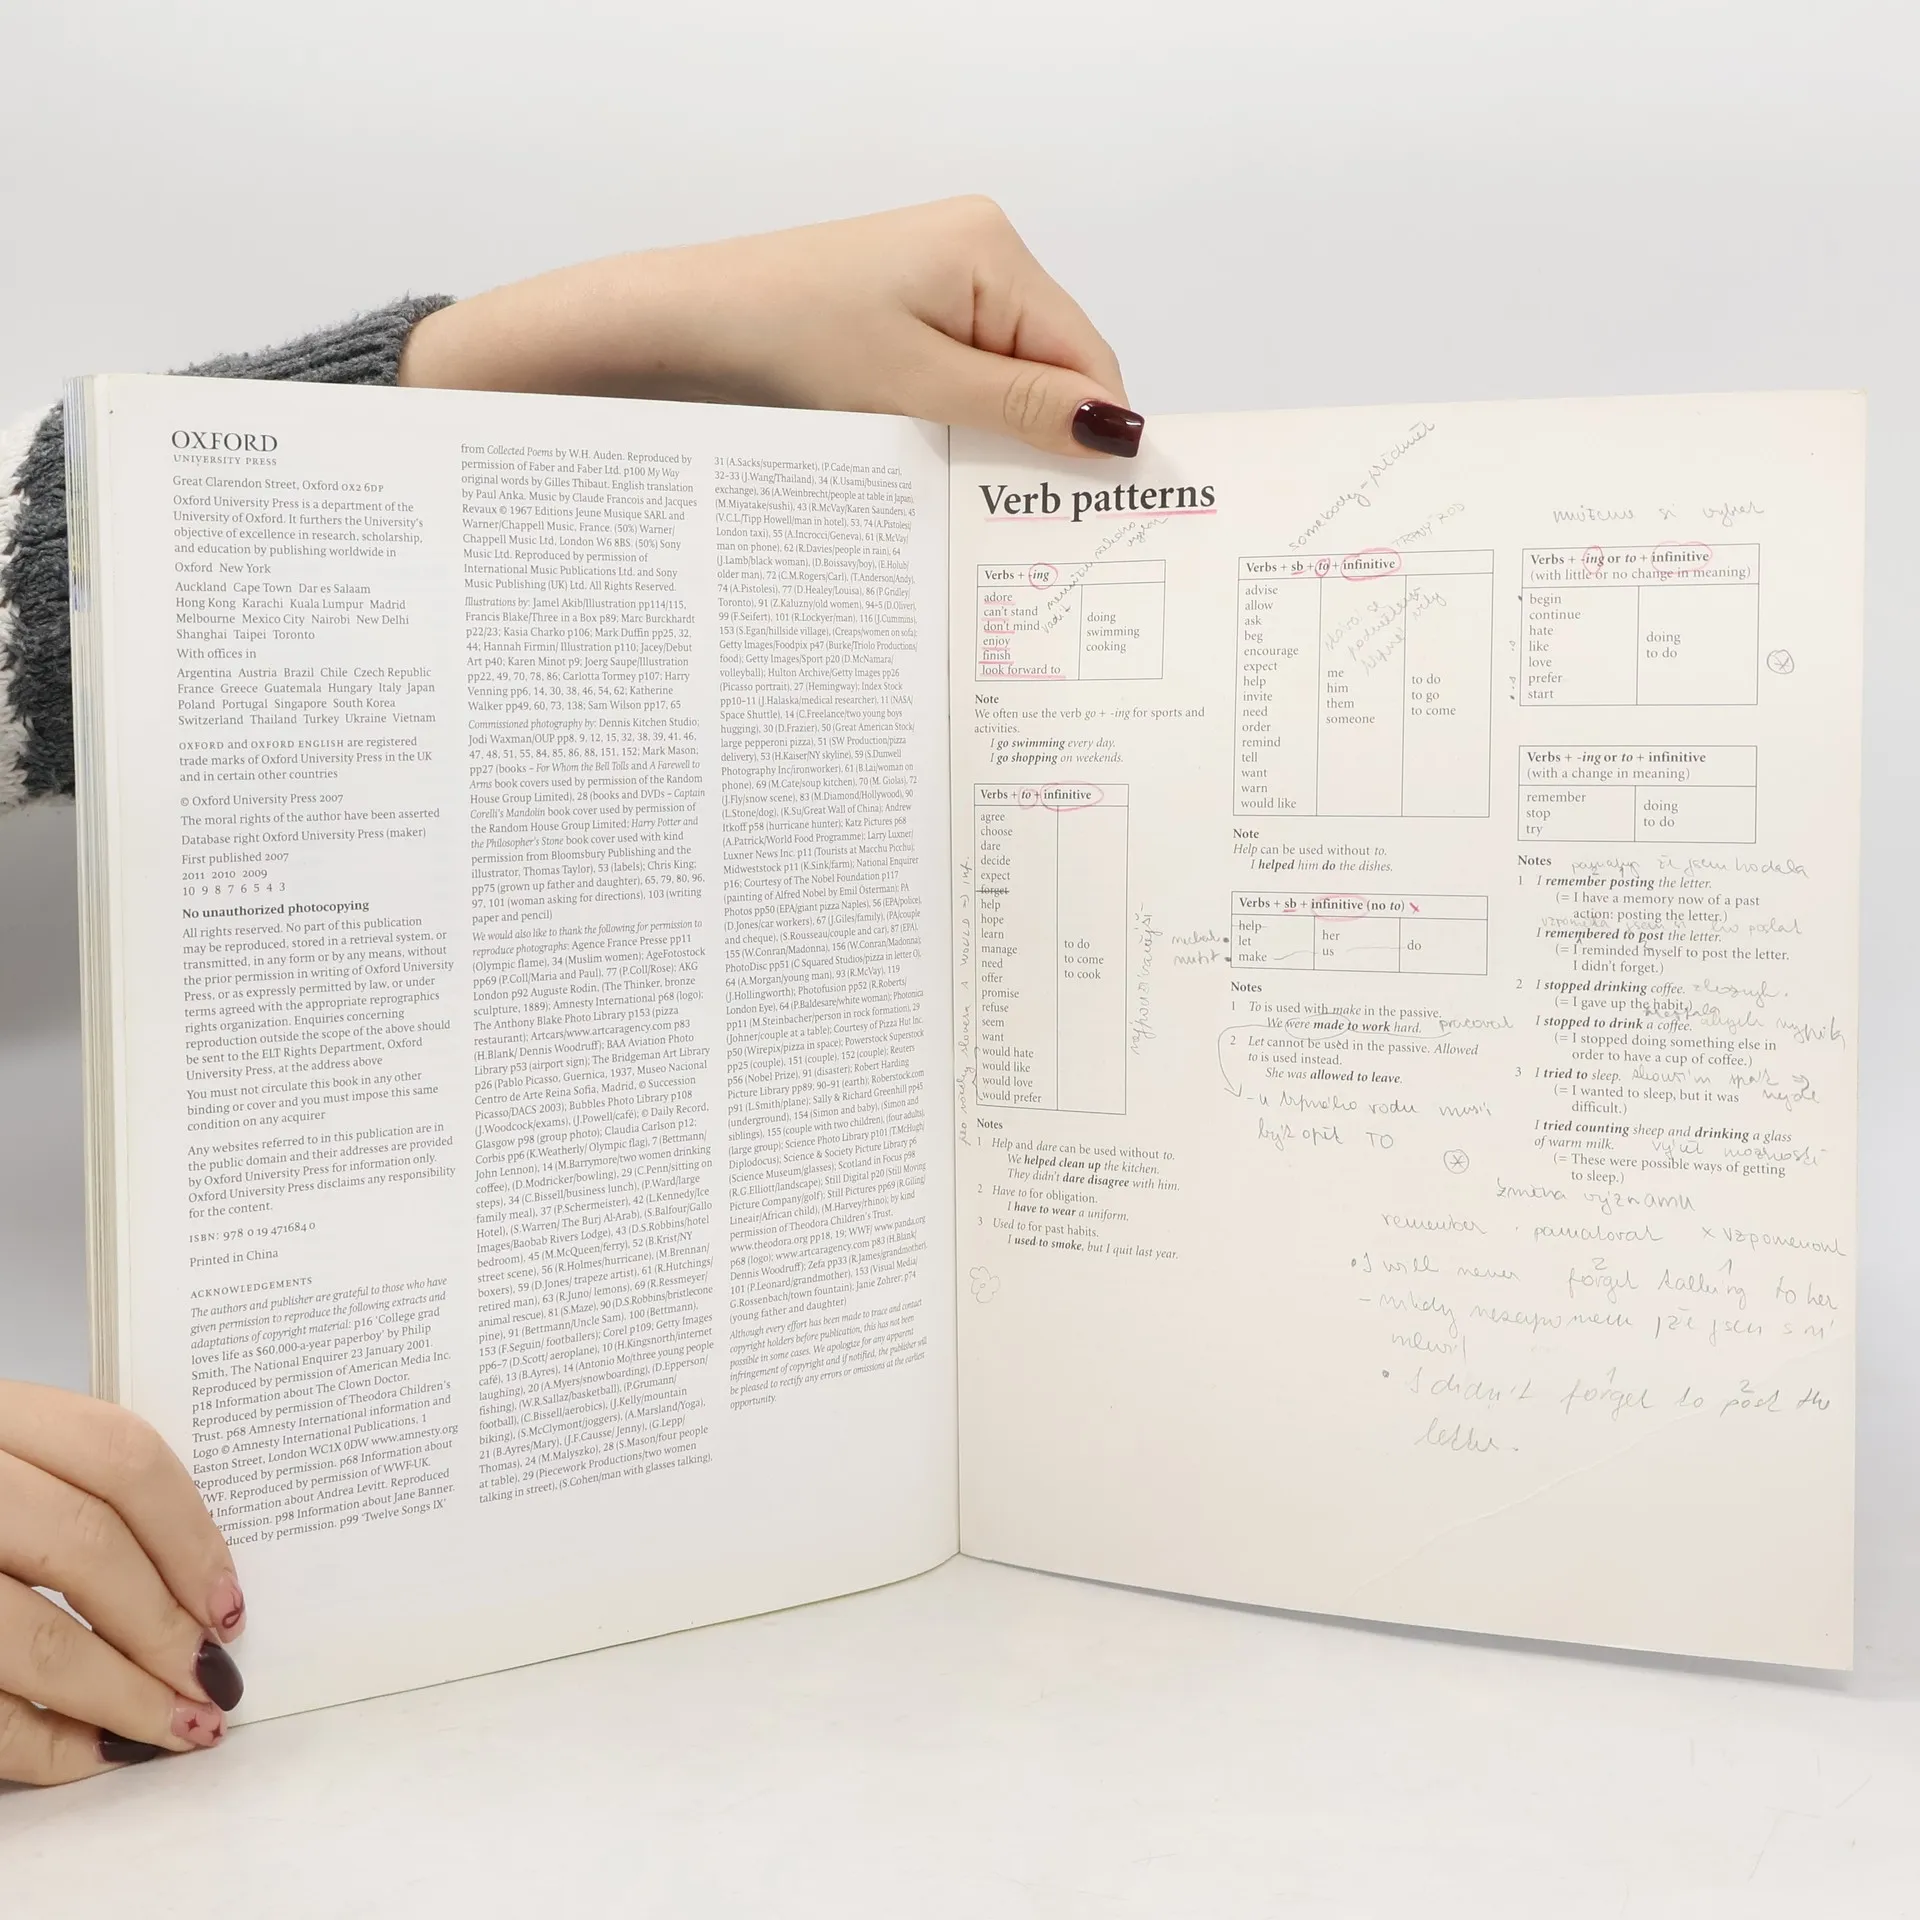 OXFORD
UNIVERSITY PRESS
Great Clarendon Street, Oxford OX2 6DP
Oxford University Press is a department of the
University of Oxford. It furthers the University's
objective of excellence in research, scholarship,
and education by publishing worldwide in
Oxford New York
Auckland Cape Town Dar es Salaam
Hong Kong Karachi Kuala Lumpur Madrid
Melbourne Mexico City Nairobi New Delhi
Shanghai Taipei Toronto
With offices in
Argentina Austria Brazil Chile Czech Republic
France Greece Guatemala Hungary Italy Japan
Poland Portugal Singapore South Korea
Switzerland Thailand Turkey Ukraine Vietnam
OXFORD and OXFORD ENGLISH are registered
trade marks of Oxford University Press in the UK
and in certain other countries
© Oxford University Press 2007
The moral rights of the author have been asserted
Database right Oxford University Press (maker)
First published 2007
2011 2010 2009
10 9 8 7 6 5 4 3
No unauthorized photocopying
All rights reserved. No part of this publication
may be reproduced, stored in a retrieval system, or
transmitted, in any form or by any means, without
the prior permission in writing of Oxford University
Press, or as expressly permitted by law, or under
terms agreed with the appropriate reprographics
rights organization. Enquiries concerning
reproduction outside the scope of the above should
be sent to the ELT Rights Department, Oxford
University Press, at the address above
You must not circulate this book in any other
binding or cover and you must impose this same
condition on any acquirer
Any websites referred to in this publication are in
the public domain and their addresses are provided
by Oxford University Press for information only.
Oxford University Press disclaims any responsibility
for the content.
ISBN: 978 0 19 471684 0
Printed in China
ACKNOWLEDGEMENTS
The authors and publisher are grateful to those who have
given permission to reproduce the following extracts and
adaptations of copyright material: p16 'College grad
loves life as $60,000-a-year paperboy' by Philip
Smith, The National Enquirer 23 January 2001.
Reproduced by permission of American Media Inc.
p18 Information about The Clown Doctor.
Reproduced by permission of Theodora Children's
Trust. p68 Amnesty International information and
Logo © Amnesty International Publications, 1
Easton Street, London WC1X 0DW www.amnesty.org
Reproduced by permission. p68 Information about
WWF. Reproduced by permission of WWF-UK.
Information about Andrea Levitt. Reproduced
permission. p98 Information about Jane Banner.
by permission. p99 'Twelve Songs IX'
from Collected Poems by W.H. Auden. Reproduced by
permission of Faber and Faber Ltd. p100 My Way
original words by Gilles Thibaut. English translation
by Paul Anka. Music by Claude Francois and Jacques
Revaux © 1967 Editions Jeune Musique SARL and
Warner/Chappell Music, France. (50%) Warner/
Chappell Music Ltd, London W6 8BS. (50%) Sony
Music Ltd. Reproduced by permission of
International Music Publications Ltd. and Sony
Music Publishing (UK) Ltd. All Rights Reserved.
Illustrations by: Jamel Akib/Illustration pp114/115,
Francis Blake/Three in a Box p89; Marc Burckhardt
p22/23; Kasia Charko p106; Mark Duffin pp25, 32,
44; Hannah Firmin/ Illustration p110; Jacey/Debut
Art p40; Karen Minot p9; Joerg Saupe/Illustration
pp22, 49, 70, 78, 86; Carlotta Tormey p107; Harry
Venning pp6, 14, 30, 38, 46, 54, 62; Katherine
Walker pp49, 60, 73, 138; Sam Wilson pp17, 65
Commissioned photography by: Dennis Kitchen Studio;
Jodi Waxman/OUP pp8, 9, 12, 15, 32, 38, 39, 41, 46,
47, 48, 51, 55, 84, 85, 86, 88, 151, 152; Mark Mason;
pp27 (books – For Whom the Bell Tolls and A Farewell to
Arms book covers used by permission of the Random
House Group Limited), 28 (books and DVDs – Captain
Corelli's Mandolin book cover used by permission of
the Random House Group Limited; Harry Potter and
the Philosopher's Stone book cover used with kind
permission from Bloomsbury Publishing and the
illustrator, Thomas Taylor), 53 (labels); Chris King;
pp75 (grown up father and daughter), 65, 79, 80, 96,
97, 101 (woman asking for directions), 103 (writing
paper and pencil)
We would also like to thank the following for permission to
reproduce photographs: Agence France Presse pp11
(Olympic flame), 34 (Muslim women); AgeFotostock
pp69 (P.Coll/Maria and Paul), 77 (P.Coll/Rose); AKG
London p92 Auguste Rodin, (The Thinker, bronze
sculpture, 1889); Amnesty International p68 (logo);
The Anthony Blake Photo Library p153 (pizza
restaurant); Artcars/www.artcaragency.com p83
(H.Blank/ Dennis Woodruff); BAA Aviation Photo
Library p53 (airport sign); The Bridgeman Art Library
p26 (Pablo Picasso, Guernica, 1937, Museo Nacional
Centro de Arte Reina Sofia, Madrid, © Succession
Picasso/DACS 2003); Bubbles Photo Library p108
(J.Woodcock/exams), (J.Powell/café); © Daily Record,
Glasgow p98 (group photo); Claudia Carlson p12;
Corbis pp6 (K.Weatherly/ Olympic flag), 7 (Bettmann/
John Lennon), 14 (M.Barrymore/two women drinking
coffee), (D.Modricker/bowling), 29 (C.Penn/sitting on
steps), 34 (C.Bissell/business lunch), (P.Ward/large
family meal), 37 (P.Schermeister), 42 (L.Kennedy/Ice
Hotel), (S.Warren/ The Burj Al-Arab), (S.Balfour/Gallo
Images/Baobab Rivers Lodge), 43 (D.S.Robbins/hotel
bedroom), 45 (M.McQueen/ferry), 52 (B.Krist/NY
street scene), 56 (R.Holmes/hurricane), (M.Brennan/
boxers), 59 (D.Jones/ trapeze artist), 61 (R.Hutchings/
retired man), 63 (R.Juno/ lemons), 69 (R.Ressmeyer/
animal rescue), 81 (S.Maze), 90 (D.S.Robbins/bristlecone
pine), 91 (Bettmann/Uncle Sam), 100 (Bettmann),
153 (F.Seguin/ footballers); Corel p109; Getty Images
pp6-7 (D.Scott/ aeroplane), 10 (H.Kingsnorth/internet
café), 13 (B.Ayres), 14 (Antonio Mo/three young people
laughing), 20 (A.Myers/snowboarding), (D.Epperson/
fishing), (W.R.Sallaz/basketball), (P.Grumann/
football), (C.Bissell/aerobics), (J.Kelly/mountain
biking), (S.McClymont/joggers), (A.Marsland/Yoga),
21 (B.Ayres/Mary), (J.F.Causse/ Jenny), (G.Lepp/
Thomas), 24 (M.Malyszko), 28 (S.Mason/four people
at table), 29 (Piecework Productions/two women
talking in street), (S.Cohen/man with glasses talking),
31 (A.Sacks/supermarket), (P.Cade/man and car),
32-33 (J.Wang/Thailand), 34 (K.Usami/business card
exchange), 36 (A.Weinbrecht/people at table in Japan),
(M.Miyatake/sushi), 43 (R.McVay/Karen Saunders), 45
(V.C.L./Tipp Howell/man in hotel), 53, 74 (A.Pistolesi/
London taxi), 55 (A.Incrocci/Geneva), 61 (R.McVay/
man on phone), 62 (R.Davies/people in rain), 64
(J.Lamb/black woman), (D.Boissavy/boy), (E.Holub/
older man), 72 (C.M.Rogers/Car), (T.Anderson/Andy),
74 (A.Pistolesi), 77 (D.Healey/Louisa), 86 (P.Gridley/
Toronto), 91 (Z.Kaluzny/old women), 94-5 (D.Oliver),
99 (F.Seifert), 101 (R.Lockyer/man), 116 (J.Cummins),
153 (S.Egan/hillside village), (Creaps/women on sofa);
Getty Images/Foodpix p47 (Burke/Triolo Productions/
food); Getty Images/Sport p20 (D.McNamara/
volleyball); Hulton Archive/Getty Images pp26
(Picasso portrait), 27 (Hemingway); Index Stock
pp10-11 (J.Halaska/medical researcher), 11 (NASA/
Space Shuttle), 14 (C.Freelance/two young boys
hugging), 30 (D.Frazier), 50 (Great American Stock/
large pepperoni pizza), 51 (SW Production/pizza
delivery), 53 (H.Kaiser/NY skyline), 59 (S.Dunwell
Photography Inc/ironworker), 61 (B.Lai/woman on
phone), 69 (M.Cate/soup kitchen), 70 (M. Giolas), 72
(J.Fly/snow scene), 83 (M.Diamond/Hollywood), 90
(L.Stone/dog), (K.Su/Great Wall of China); Andrew
Itkoff p58 (hurricane hunter); Katz Pictures p68
(A.Patrick/World Food Programme); Larry Luxner/
Luxner News Inc. p11 (Tourists at Macchu Picchu);
Midweststock p11 (K.Sink/farm); National Enquirer
p16; Courtesy of The Nobel Foundation p117
(painting of Alfred Nobel by Emil Osterman); PA
Photos pp50 (EPA/giant pizza Naples), 56 (EPA/police),
(D.Jones/car workers), 67 (J.Giles/family), (PA/couple
and cheque), (S.Rousseau/couple and car), 87 (EPA),
155 (W.Conran/Madonna), 156 (W.Conran/Madonna);
PhotoDisc pp51 (C Squared Studios/pizza in letter O),
64 (A.Morgan/young man), 93 (R.McVay), 119
(J.Hollingworth); Photofusion pp52 (R.Roberts/
London Eye), 64 (P.Baldesare/white woman); Photonica
pp11 (M.Steinbacher/person in rock formation), 29
(Johner/couple at a table); Courtesy of Pizza Hut Inc.
p50 (Wirepix/pizza in space); Powerstock Superstock
pp25 (couple), 151 (couple), 152 (couple); Reuters
p56 (Nobel Prize), 91 (disaster); Robert Harding
Picture Library pp89; 90-91 (earth); Roberstock.com
p91 (L.Smith/plane); Sally & Richard Greenhill pp45
(underground), 154 (Simon and baby), (Simon and
siblings), 155 (couple with two children), (four adults),
(large group); Science Photo Library p101 (T.McHugh/
Diplodocus); Science & Society Picture Library p6
(Science Museum/glasses); Scotland in Focus p98
(R.G.Elliott/landscape); Still Digital p20 (Still Moving
Picture Company/golf); Still Pictures pp69 (R.Giling/
Lineair/African child), (M.Harvey/rhino); by kind
permission of Theodora Children's Trust.
www.theodora.org pp18, 19; WWF/ www.panda.org
p68 (logo); www.artcaragency.com p83 (H.Blank/
Dennis Woodruff); Zefa pp33 (R.James/grandmother),
101 (P.Leonard/grandmother), 153 (Visual Media/
G.Rossenbach/town fountain); Janie Zohrer: p74
(young father and daughter)
Although every effort has been made to trace and contact
copyright holders before publication, this has not been
possible in some cases. We apologize for any apparent
infringement of copyright and if notified, the publisher will
be pleased to rectify any errors or omissions at the earliest
opportunity.
Verb patterns
Verbs + -ing
adore
can't stand
don't mind
enjoy
finish
look forward to
doing
swimming
cooking
Note
We often use the verb go + -ing for sports and
activities.
I go swimming every day.
I go shopping on weekends.
Verbs + to + infinitive
agree
choose
dare
decide
expect
forget
help
hope
learn
manage
need
offer
promise
refuse
seem
want
would hate
would like
would love
would prefer
to do
to come
to cook
Notes
1 Help and dare can be used without to.
We helped clean up the kitchen.
They didn't dare disagree with him.
2 Have to for obligation.
I have to wear a uniform.
3 Used to for past habits.
I used to smoke, but I quit last year.
somebody - předmět
Verbs + sb + to + infinitive
advise
allow
ask
beg
encourage
expect
help
invite
need
order
remind
tell
want
warn
would like
me
him
them
someone
to do
to go
to come
Note
Help can be used without to.
I helped him do the dishes.
Verbs + sb + infinitive (no to)
help
let
make
her
us
do
nechat
nutit
Notes
1 To is used with make in the passive.
We were made to work hard. pracovat
2 Let cannot be used in the passive. Allowed
to is used instead.
She was allowed to leave.
- u trpného rodu musí
být opět TO
můžeme si vybrat
Verbs + -ing or to + infinitive
(with little or no change in meaning)
begin
continue
hate
like
love
prefer
start
doing
to do
Verbs + -ing or to + infinitive
(with a change in meaning)
remember
stop
try
doing
to do
Notes
1 I remember posting the letter.
(= I have a memory now of a past
action: posting the letter.)
I remembered to post the letter.
(= I reminded myself to post the letter.
I didn't forget.)
2 I stopped drinking coffee.
(= I gave up the habit.)
I stopped to drink a coffee.
(= I stopped doing something else in
order to have a cup of coffee.)
3 I tried to sleep.
(= I wanted to sleep, but it was
difficult.)
I tried counting sheep and drinking a glass
of warm milk. výčet možností
(= These were possible ways of getting
to sleep.)
změna významu
remember pamatovat x vzpomenout
I will never forget talking to her
- nikdy nezapomenu že jsem s ní
mluvil
I didn't forget to post the
letter.